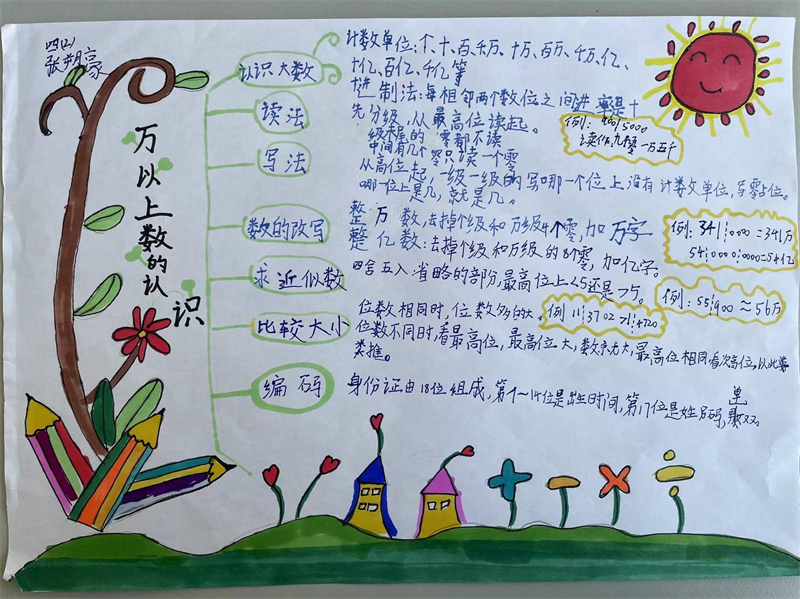 四(2)
张朔豪
万以上数的认识
认识大数
计数单位:个、十、百、千、万、十万、百万、千万、亿、
十亿、百亿、千亿等
进制法:每相邻两个数位之间进率是十
读法
先分级,从最高位读起。
级末尾的零都不读
中间有几个零只读一个零
例:90015000
读作:九
一万五千
写法
从高位起,一级一级的写哪一个位上没有计数单位,写零占位。
哪一位上是几,就是几。
数的改写
整万数,去掉个级和万级4个零,加万字
整亿数:去掉个级和万级的8个零,加亿字。
例:341|0000=341万
54|0000|0000=54亿
求近似数
四舍五入省略的部份,最高位上<5还是>5。
例:55|900≈56万
比较大小
位数相同时,位数多的大。
例
位数不同时,看最高位,最高位大,数就大,最高位相同看次高位,以此类推。
编码
身份证由18位组成,第
14位是出生时间,第17位是姓
码,单
双。